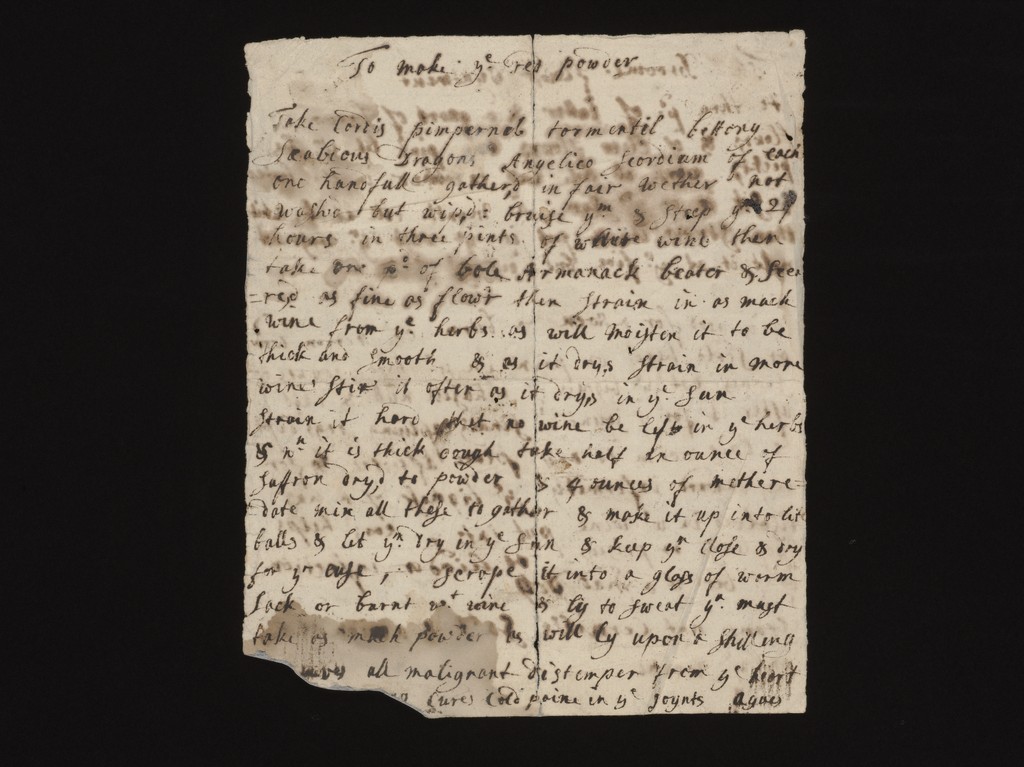 To make ye red powder
Take Cordis pimpernel tormentil bettony
Scabious Dragons Angelico Scordium of each
one handfull gather,d in fair wether not
washd but wip,d bruise ym & steep ym 24
hours in three pints of white wine then
take one po of bole Armanack beaten & seer
=ced as fine as flowr then strain in as much
wine from ye herbs as will moisten it to be
thick and smooth & as it drys strain in more
wine stir it often as it drys in ye sun
strain it hard that no wine be left in ye herbs
& wn it is thick enough take half an ounce of
saffron dry,d to powder & 4 ounces of methere=
date mix all these to gather & make it up into lit
balls & let ym Dry in ye sun & keep ym Close & dry
for yr use, scrape it into a glass of warm
sack or burnt wt wine & ly to sweat yn must
take as much powder as will ly upon a shilling
all malignant distemper from ye heart
Cures Cold paine in ye Joynts Agues